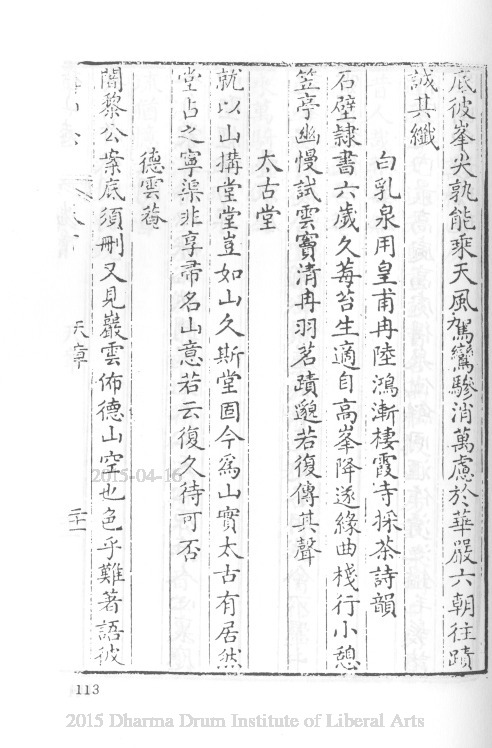 底彼峯尖孰能乘天風駕鸞驂消萬慮於華嚴六朝往蹟
誠其纖
白乳泉用皇甫冉陸鴻漸棲霞寺採茶詩韻
石壁隸書六歲久莓苔生適自高峯降遂緣曲棧行小憩
笠亭幽慢試雲竇清冉羽茗蹟邈若復傳其聲
太古堂
就以山搆堂堂豈如山久斯堂固今爲山實太古有居然
堂占之寧渠非享帚名山意若云復久待可否
德雲菴
闍黎公案底須刪又見巖雲佈德山空也色乎難著語彼
天章
二十一
2015-04-16
113
2015 Dharma Drum Institute of Liberal Arts